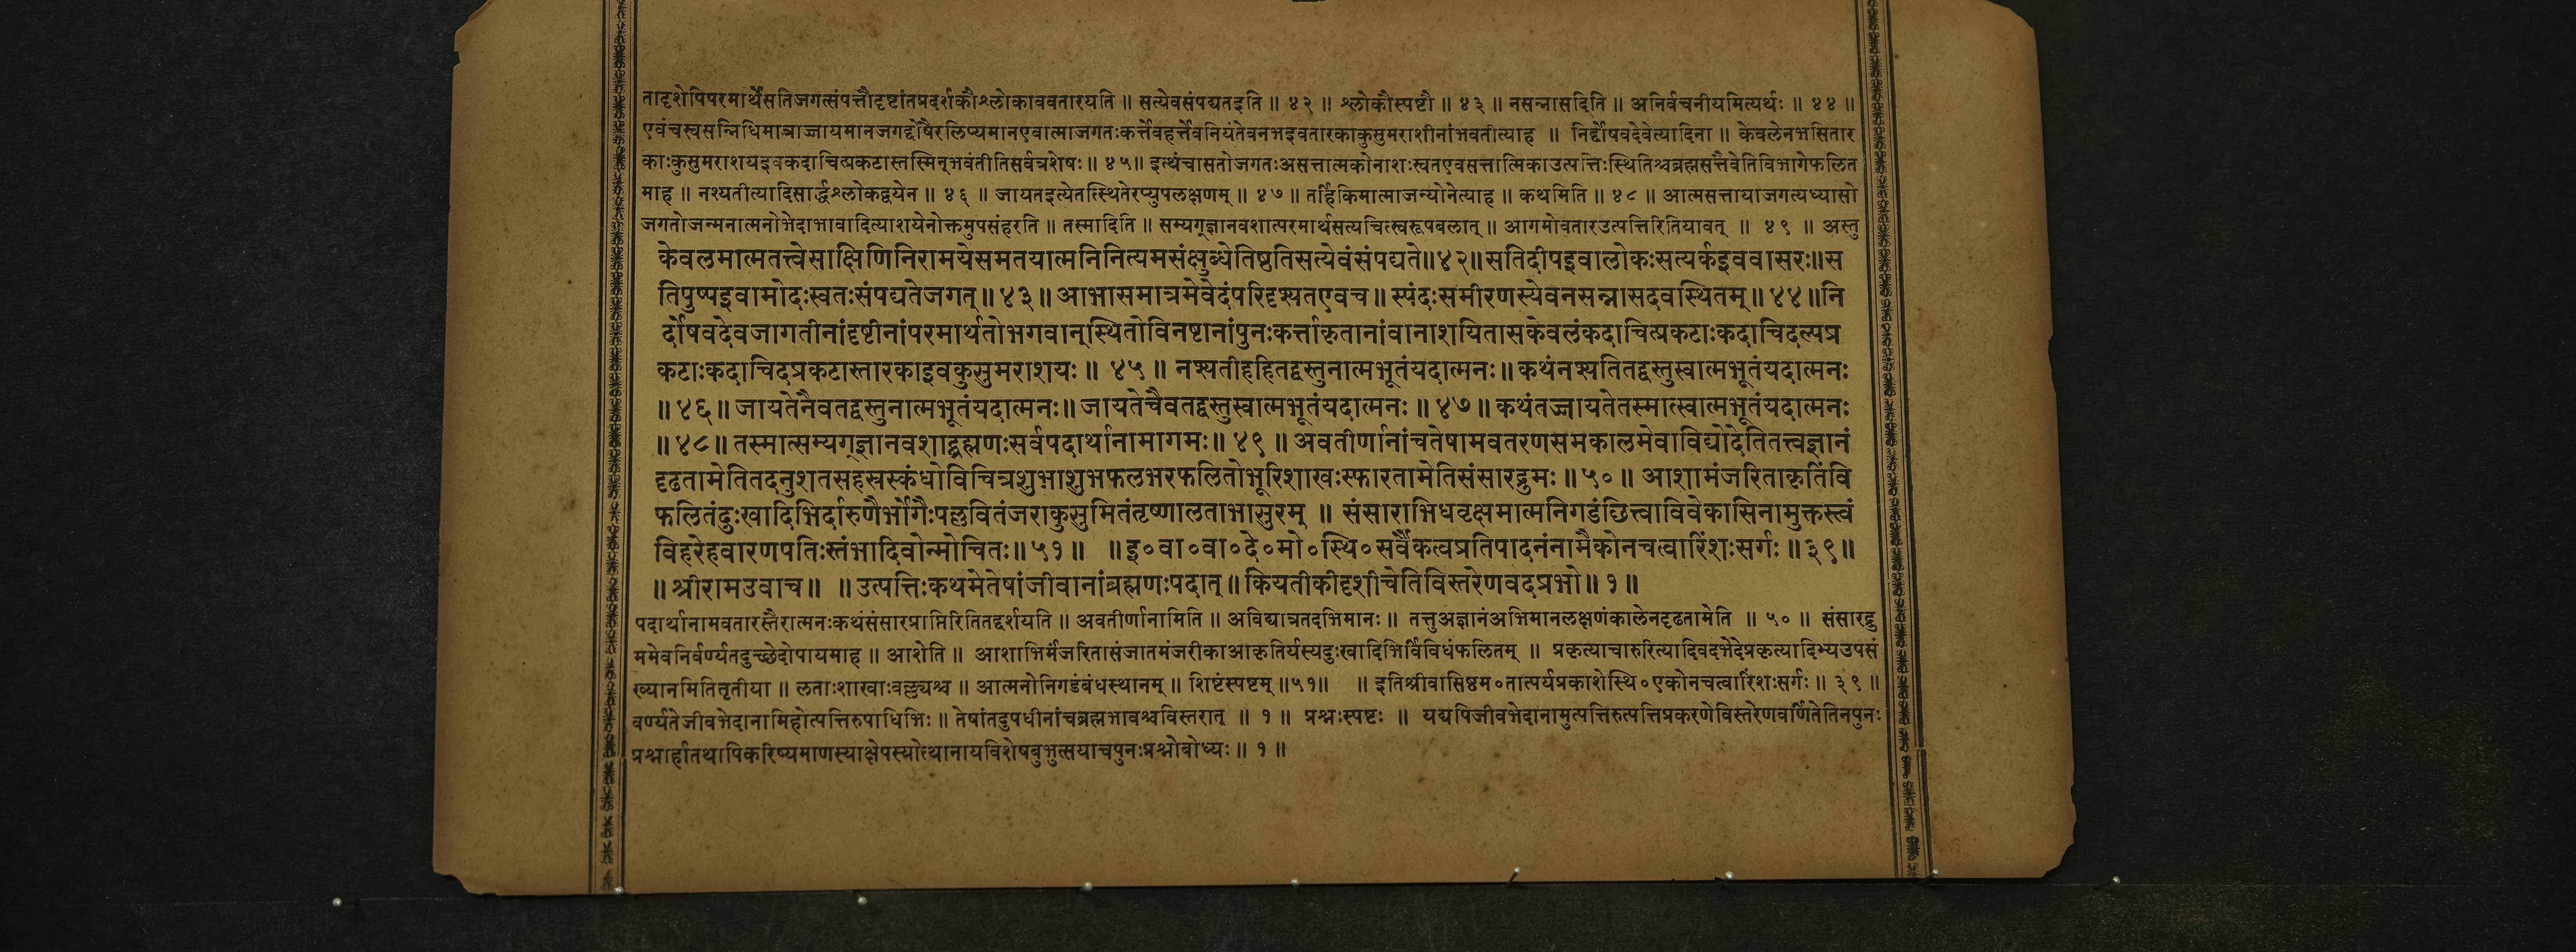 तादृशेपिपरमार्थेसतिजगत्संपत्तौदृष्टांतप्रदर्शकौश्लोकाववतारयति ॥ सत्येवसंपद्यतइति ॥ ४२ ॥ श्लोकौस्पष्टौ ॥ ४३ ॥ नसन्नासदिति ॥ अनिर्वचनीयमित्यर्थः ॥ ४४ ॥
एवंचस्वसन्निधिमात्राज्जायमानजगद्दोषैरलिप्यमानएवात्माजगतःकर्त्तेवहर्त्तेवनियंतेवनभइवतारकाकुसुमराशीनांभवतीत्याह ॥ निर्द्दोषवदेवेत्यादिना ॥ केवलेनभसितार
काःकुसुमराशयइवकदाचित्प्रकटास्तस्मिन्भवंतीतिसर्वत्रशेषः ॥ ४५ ॥ इत्थंचासतोजगतःअसत्तात्मकोनाशःस्वतएवसत्तात्मिकाउत्पत्तिःस्थितिश्चब्रह्मसत्तैवेतिविभागेफलित
माह ॥ नश्यतीत्यादिसार्द्धश्लोकद्वयेन ॥ ४६ ॥ जायतइत्येतत्स्थितेरप्युपलक्षणम् ॥ ४७ ॥ तर्हिकिमात्माजन्योनेत्याह ॥ कथमिति ॥ ४८ ॥ आत्मसत्तायाजगत्यध्यासो
जगतोजन्मनात्मनोभेदाभावादित्याशयेनोक्तमुपसंहरति ॥ तस्मादिति ॥ सम्यग्ज्ञानवशात्परमार्थसत्यचित्स्वरूपबलात् ॥ आगमोवतारउत्पत्तिरितियावत् ॥ ४९ ॥ अस्तु
केवलमात्मतत्त्वेसाक्षिणिनिरामयेसमतयात्मनिनित्यमसंक्षुब्धेतिष्ठतिसत्येवंसंपद्यते॥४२॥सतिदीपइवालोकःसत्यर्कइववासरः॥स
तिपुष्पइवामोदःस्वतःसंपद्यतेजगत्॥४३॥आभासमात्रमेवेदंपरिदृश्यतएवच॥स्पंदःसमीरणस्येवनसन्नासदवस्थितम्॥४४॥नि
र्दोषवदेवजागतीनांदृष्टीनांपरमार्थतोभगवान्स्थितोविनष्टानांपुनःकर्त्ताकृतानांवानाशयितासकेवलंकदाचित्प्रकटाःकदाचिदल्पप्र
कटाःकदाचिदप्रकटास्तारकाइवकुसुमराशयः॥ ४५ ॥ नश्यतीहहितद्वस्तुनात्मभूतंयदात्मनः॥कथंनश्यतितद्वस्तुस्वात्मभूतंयदात्मनः
॥४६॥जायतेनैवतद्वस्तुनात्मभूतंयदात्मनः॥जायतेचैवतद्वस्तुस्वात्मभूतंयदात्मनः॥४७॥कथंतज्जायतेतस्मात्स्वात्मभूतंयदात्मनः
॥४८॥तस्मात्सम्यग्ज्ञानवशाद्ब्रह्मणःसर्वपदार्थानामागमः॥४९॥अवतीर्णानांचतेषामवतरणसमकालमेवाविद्योदेतितत्त्वज्ञानं
दृढतामेतितदनुशतसहस्रस्कंधोविचित्रशुभाशुभफलभरफलितोभूरिशाखःस्फारतामेतिसंसारद्रुमः॥५०॥ आशामंजरिताकृतिंवि
फलितंदुःखादिभिर्दारुणैर्भोगैःपल्लवितंजराकुसुमितंतृष्णालताभासुरम् ॥ संसाराभिधवृक्षमात्मनिगडंछित्त्वाविवेकासिनामुक्तस्त्वं
विहरेहवारणपतिःस्तंभादिवोन्मोचितः॥५१॥ ॥इ०वा०वा०दे०मो०स्थि०सर्वैकत्वप्रतिपादनंनामैकोनचत्वारिंशःसर्गः॥३९॥
॥श्रीरामउवाच॥ ॥उत्पत्तिःकथमेतेषांजीवानांब्रह्मणःपदात्॥कियतीकीदृशीचेतिविस्तरेणवदप्रभो॥१॥
पदार्थानामवतारस्तैरात्मनःकथंसंसारप्राप्तिरितितद्दर्शयति ॥ अवतीर्णानामिति ॥ अविद्यात्रतदभिमानः ॥ तत्तुअज्ञानंअभिमानलक्षणंकालेनदृढतामेति ॥ ५० ॥ संसारद्रु
ममेवनिर्वर्ण्यतदुच्छेदोपायमाह ॥ आशेति ॥ आशाभिर्मंजरितासंजातमंजरीकाआकृतिर्यस्यदुःखादिभिर्विविधंफलितम् ॥ प्रकृत्याचारुरित्यादिवदभेदेप्रकृत्यादिभ्यउपसं
ख्यानमितितृतीया ॥ लताःशाखाःवल्ल्यश्च ॥ आत्मनोनिगडंबंधस्थानम् ॥ शिष्टंस्पष्टम् ॥५१॥ ॥ इतिश्रीवासिष्ठम०तात्पर्यप्रकाशेस्थि०एकोनचत्वारिंशःसर्गः ॥ ३९ ॥
वर्ण्यतेजीवभेदानामिहोत्पत्तिरुपाधिभिः ॥ तेषांतदुपधीनांचब्रह्मभावश्चविस्तरात् ॥ १ ॥ प्रश्नःस्पष्टः ॥ यद्यपिजीवभेदानामुत्पत्तिरुत्पत्तिप्रकरणेविस्तरेणवर्णितेतिनपुनः
प्रश्नार्हातथापिकरिष्यमाणस्याक्षेपस्योत्थानायविशेषबुभुत्सयाचपुनःप्रश्नोबोध्यः ॥ १ ॥